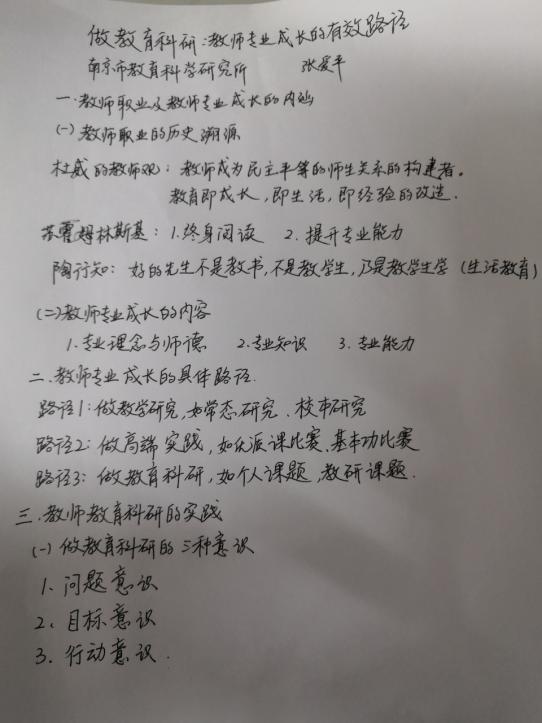 做教育科研:教师专业成长的有效路径
南京市教育科学研究所 张爱平
一.教师职业及教师专业成长的内涵
(一)教师职业的历史溯源
杜威的教师观:教师成为民主平等的师生关系的构建者。
教育即成长,即生活,即经验的改造.
苏霍姆林斯基:1.终身阅读 2.提升专业能力
陶行知:好的先生不是教书,不是教学生,乃是教学生学(生活教育)
(二)教师专业成长的内容
1.专业理念与师德 2.专业知识 3.专业能力
二.教师专业成长的具体路径.
路径1:做教学研究,如常态研究、校本研究
路径2:做高端实践,如众派课比赛、基本功比赛
路径3:做教育科研,如个人课题,教研课题.
三.教师教育科研的实践
(一)做教育科研的三种意识
1.问题意识
2.目标意识
3.行动意识.